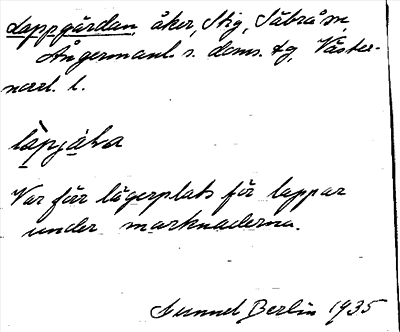 Lappgårdan, åker, Stig, Säbrå sn,
Ångermanl. s. doms. tg, Väster-
norrl. l.
Var förr lägerplats för lappar
under marknaderna.
Gunnel Berlin 1935